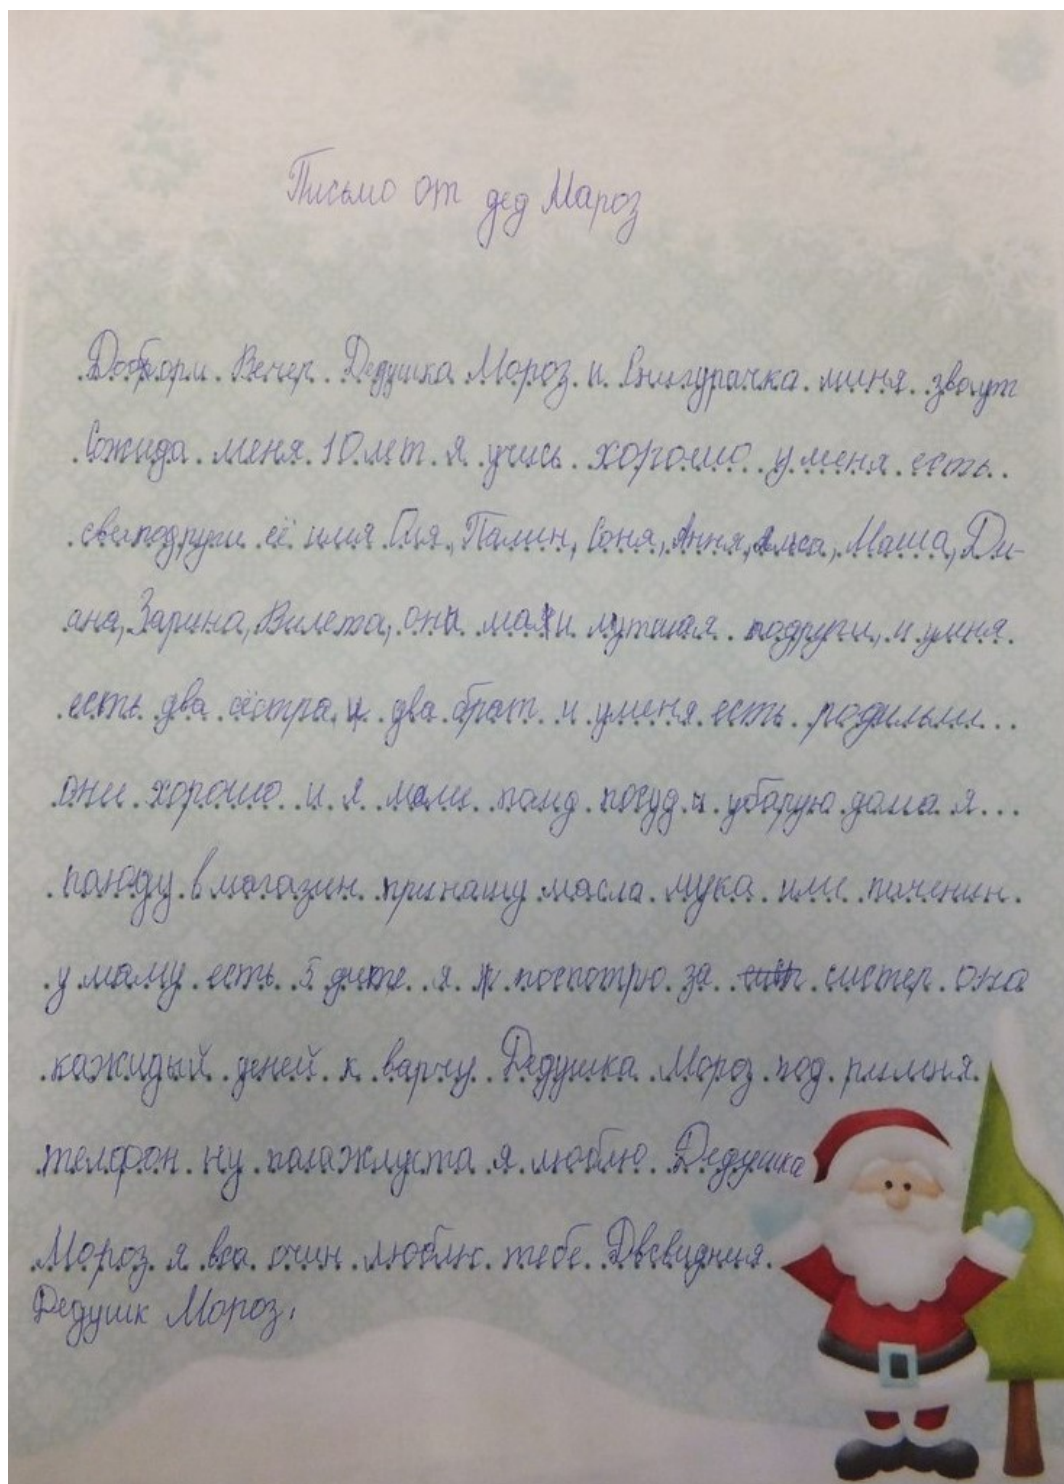 Письмо от дед Мароз
Доборм Вечер Дедушка Мороз и Снигурачка миня звоут
Сожида меня 10 лет я учись хорошо у меня есть
свеподруги её имя Гля, Палин, Соня, Ання, Алиса, Маша, Ди-
ана, Зарина, Вилета, они маяи лутшая подруги, и уминя
есть два сёстра и два брат и уменя есть родильи
они хорошо и я моли памд посуд и убарую дома я
паюду в магазин принашу масла мука или пиченин
у маму есть 5 дите я поспотрю за систер она
кажидый деней к варчу Дедушка Мороз под риминя
телфон ну палажлуста я люблю Дедушка
Мороз я вса очин люблю тебе Двсвидния
Дедушк Мороз.